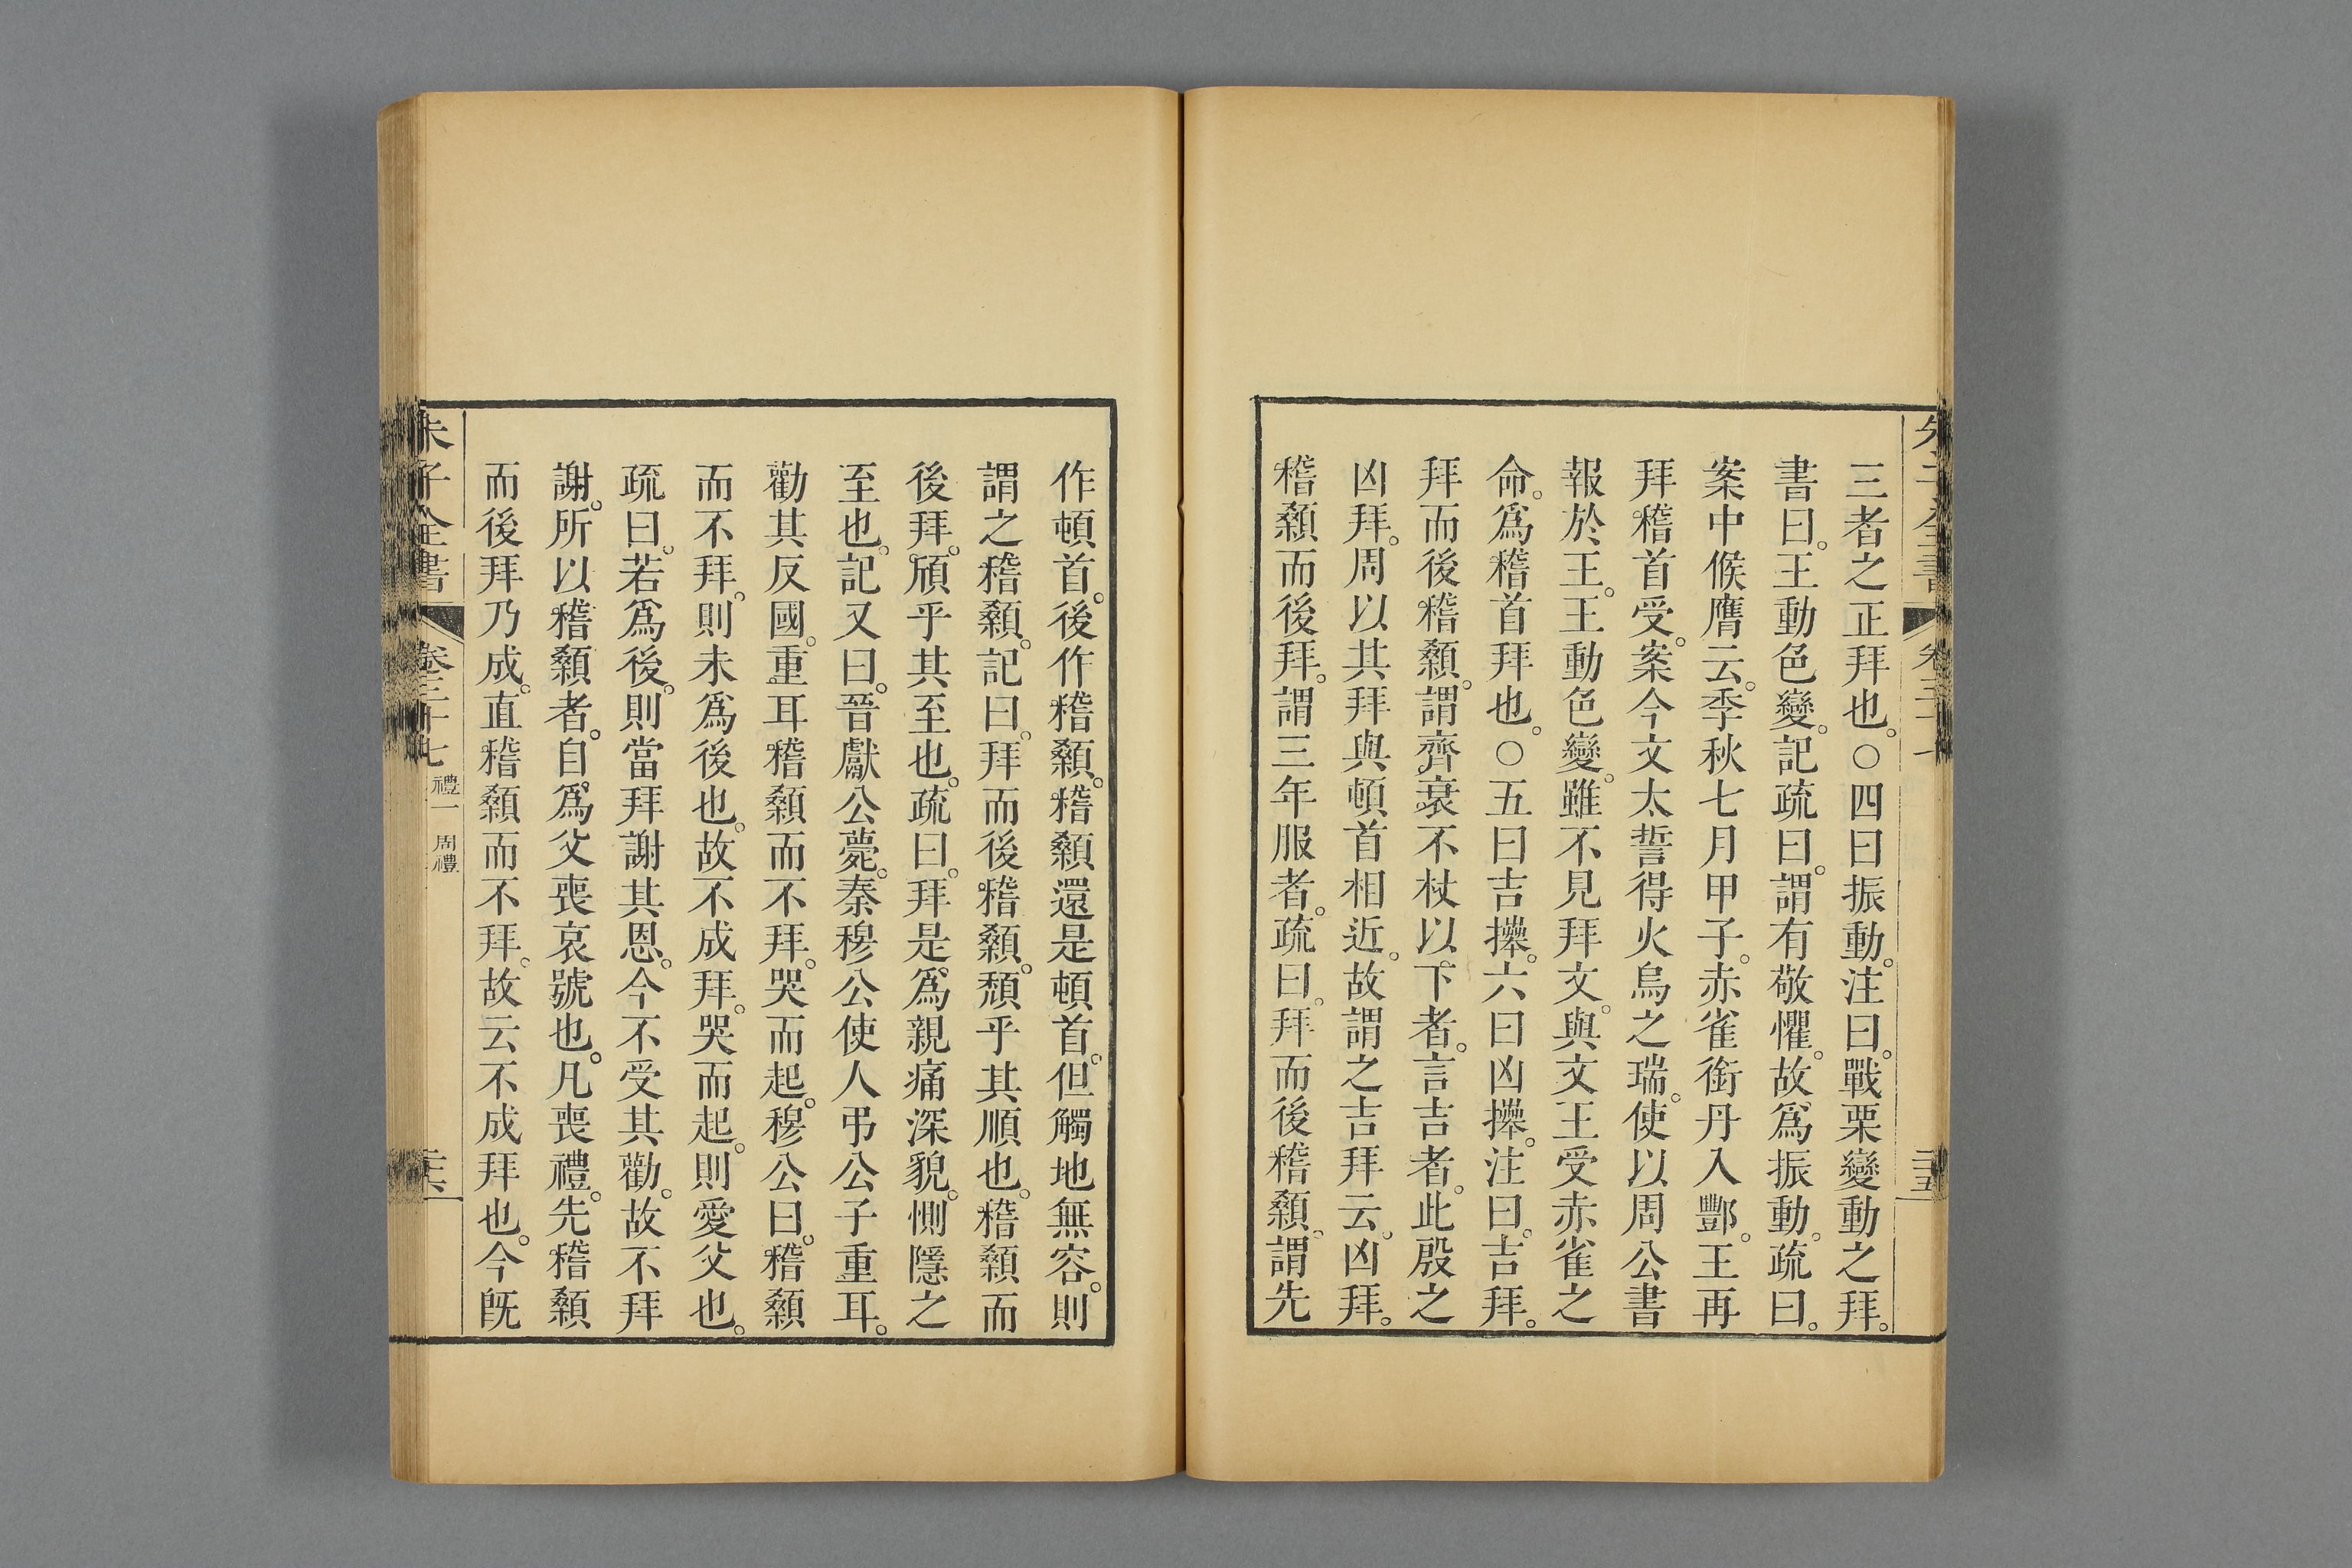 三者之正拜也。○四曰振動。注曰。戰栗變動之拜。
書曰。王動色變。記疏曰。謂有敬懼。故爲振動。疏曰。
案中候膺云。季秋七月甲子。赤雀銜丹入酆。王再
拜稽首受。案今文太誓得火烏之瑞。使以周公書
報於王。王動色變。雖不見拜文。與文王受赤雀之
命。爲稽首拜也。○五曰吉𢷎。六曰凶𢷎。注曰。吉拜。
拜而後稽顙。謂齊衰不杖以下者。言吉者。此殷之
凶拜。周以其拜與頓首相近。故謂之吉拜云。凶拜。
稽顙而後拜。謂三年服者。疏曰。拜而後稽顙。謂先
作頓首。後作稽顙。稽顙還是頓首。但觸地無容。則
謂之稽顙。記曰。拜而後稽顙。頹乎其順也。稽顙而
後拜。頎乎其至也。疏曰。拜是爲親痛深貌。惻隱之
至也。記又曰。晉獻公薨。秦穆公使人弔公子重耳。
勸其反國。重耳稽顙而不拜。哭而起。穆公曰。稽顙
而不拜。則未爲後也。故不成拜。哭而起。則愛父也。
疏曰。若爲後。則當拜謝其恩。今不受其勸。故不拜
謝。所以稽顙者。自爲父喪哀號也。凡喪禮。先稽顙
而後拜乃成。直稽顙而不拜。故云不成拜也。今旣
朱子全書 卷三十七 禮一 周禮